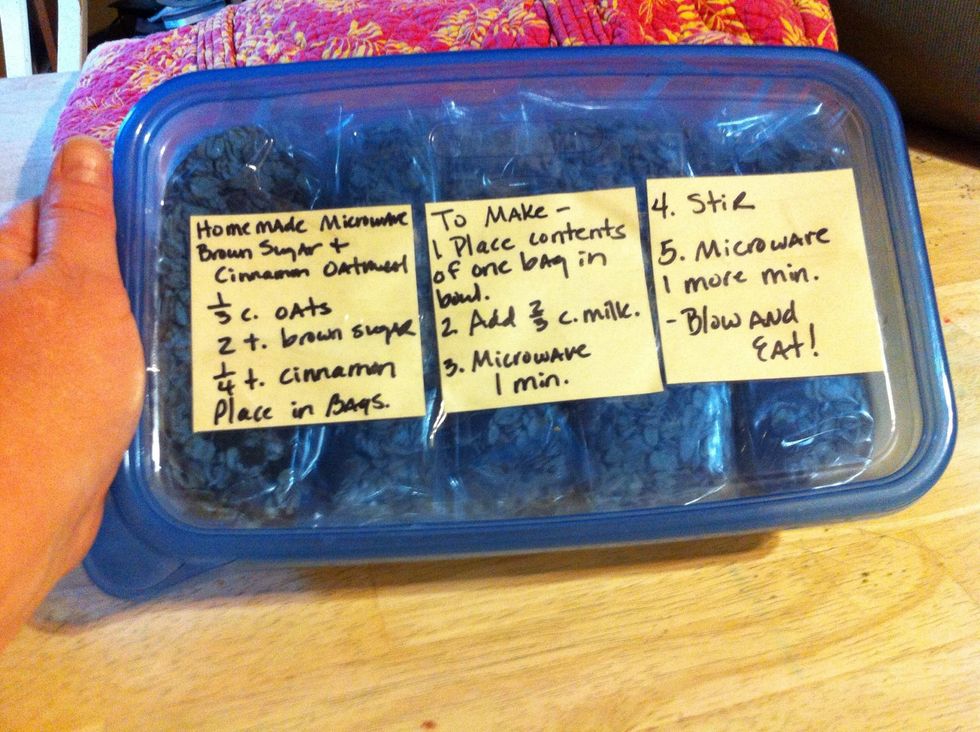 Homemade Microwave
Brown Sugar +
Cinnamon Oatmeal
1/3 c. oats
2 t. brown sugar
1/4 t. cinnamon
Place in Bags.
To Make -
1 Place contents
of one bag in
bowl.
2 Add 2/3 c. milk.
3. Microwave
1 min.
4. Stir
5. Microwave
1 more min.
- Blow and
Eat!